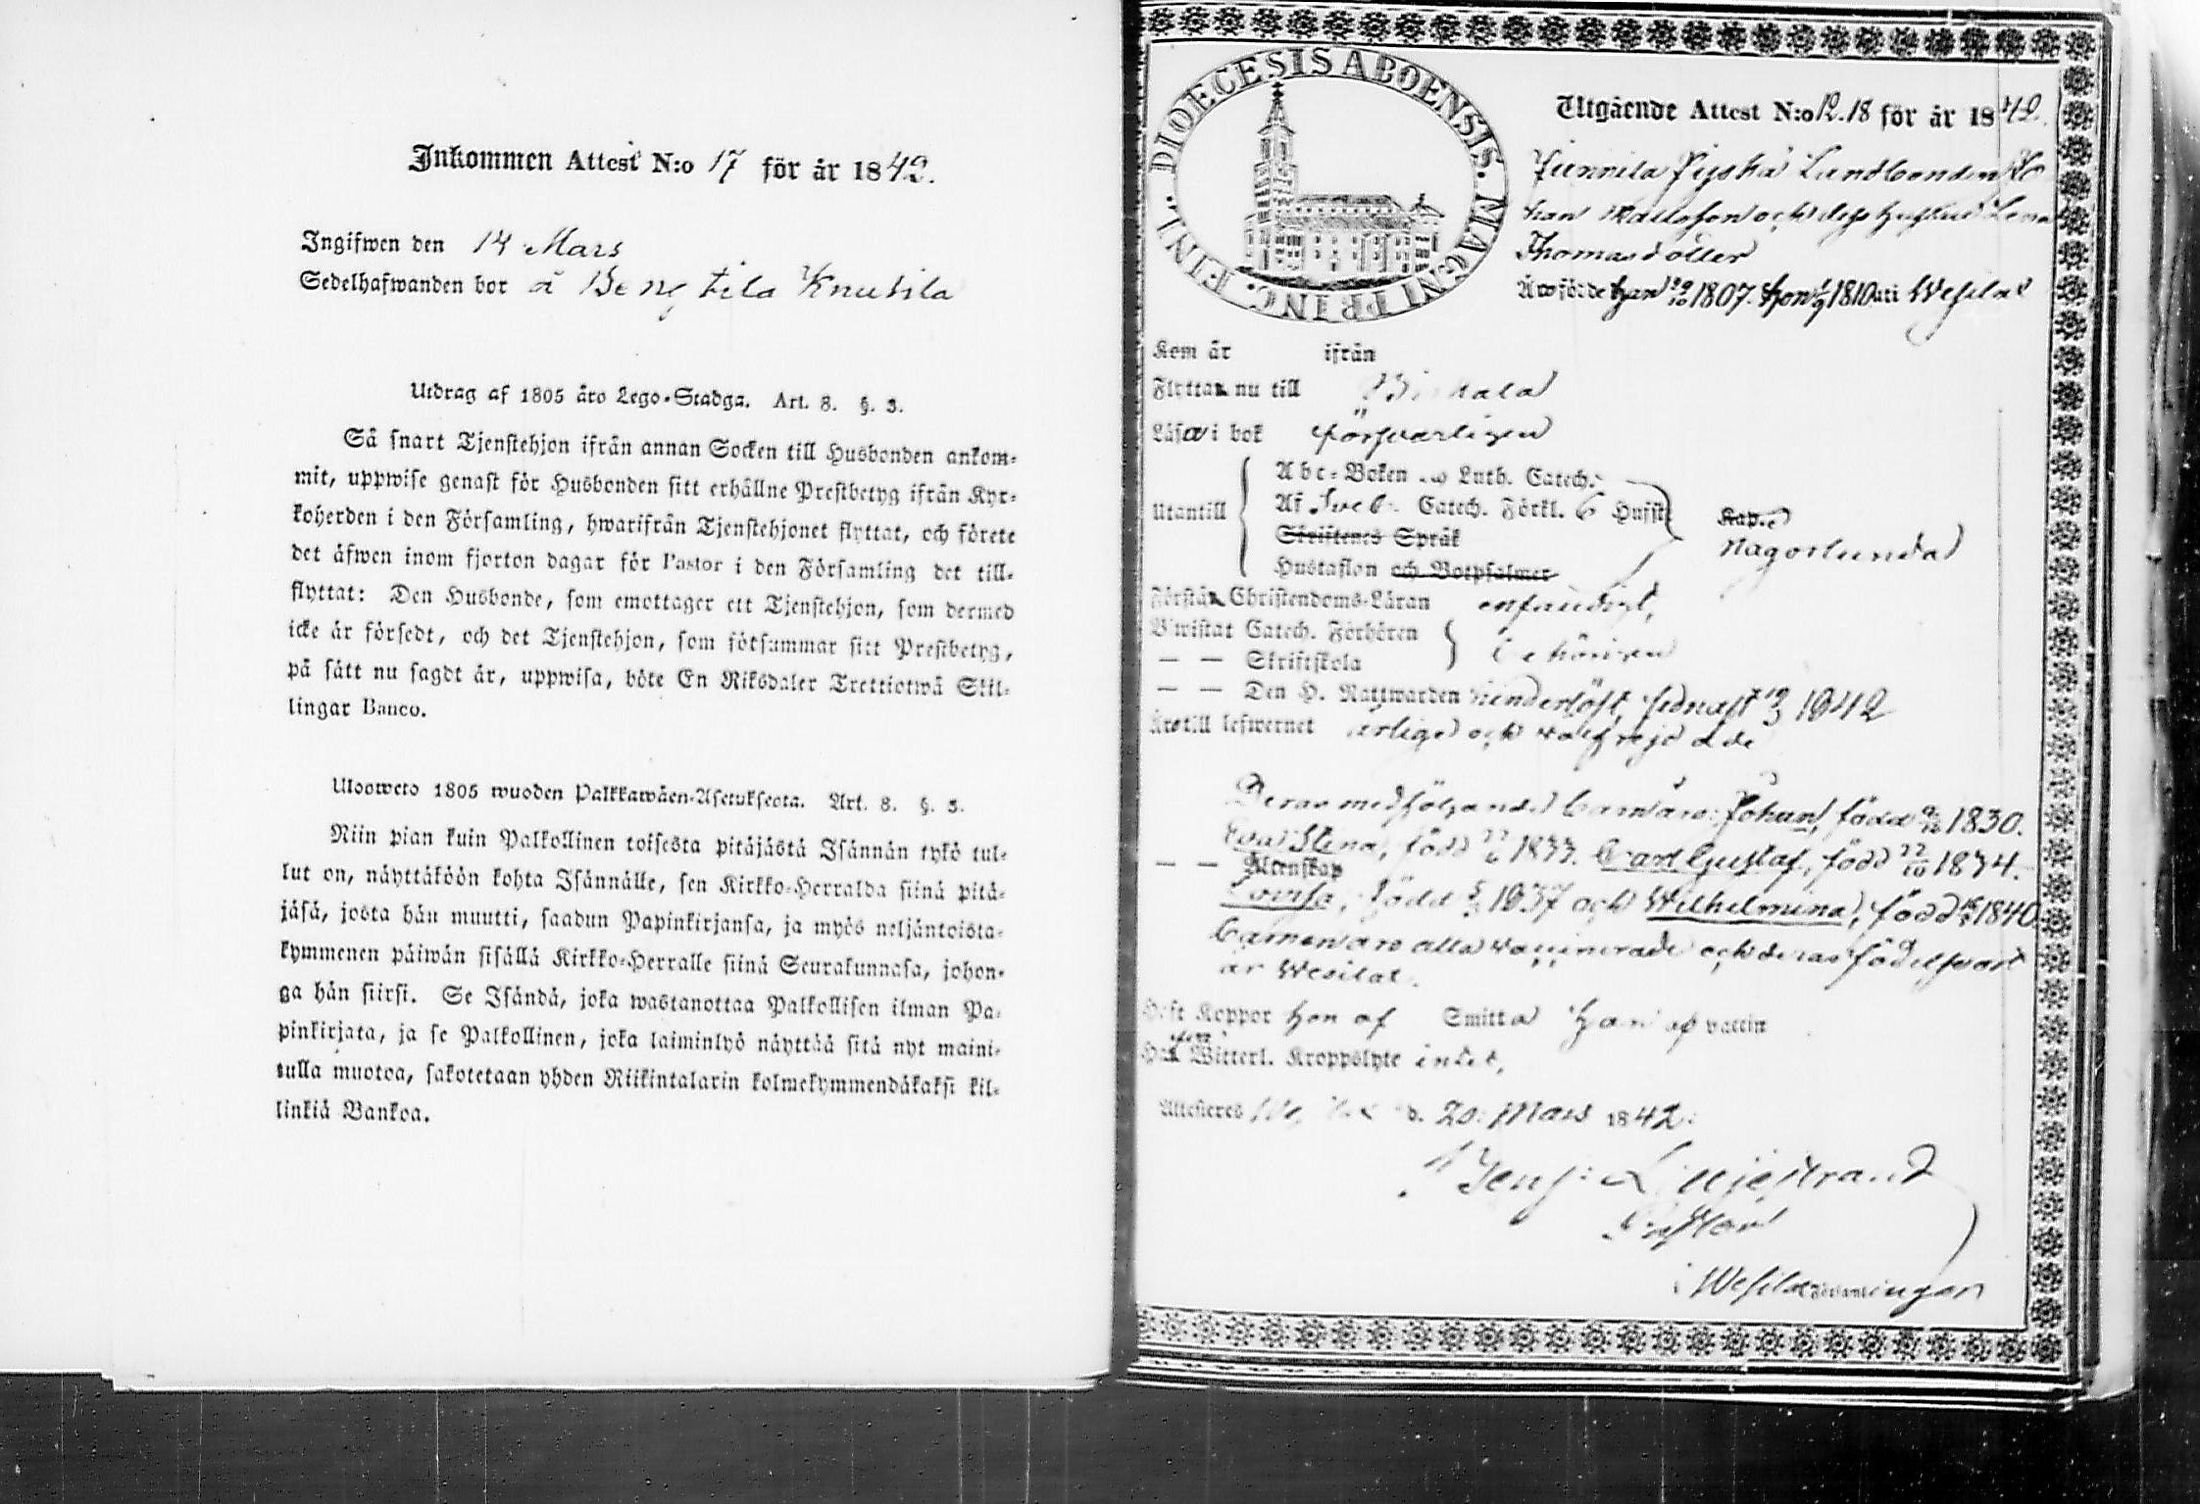 Inkommen Attest N:o 17 för år 1842.
Ingifwen den 14 Mars
Sedelhafwanden bor å Bengtila Knutila
Utdrag af 1805 års Lego-Stadga. Art. 8. §. 3.
Så snart Tjenstehjon ifrån annan Socken till Husbonden ankom-
mit, uppwise genast för Husbonden sitt erhållne Prestbetyg ifrån Kyr-
koherden i den Församling, hwarifrån Tjenstehjonet flyttat, och förete
det äfwen inom fjorton dagar för Pastor i den Församling det till-
flyttat: Den Husbonde, som emottager ett Tjenstehjon, som dermed
icke är försedt, och det Tjenstehjon, som försummar sitt Prestbetyg,
på sätt nu sagdt är, uppwisa, böte En Riksdaler Trettiotwå Skil-
lingar Banco.
Ulosweto 1805 wuoden Palkkawäen-Asetuksesta. Art. 8. §. 3.
Niin pian kuin Palkollinen toisesta pitäjästä Isännän tykö tul-
lut on, näyttäköön kohta Isännälle, sen Kirkko-Herralda siinä pitä-
jäsä, josta hän muutti, saadun Papinkirjansa, ja myös neljäntoista-
kymmenen päiwän sisällä Kirkko-Herralle siinä Seurakunnasa, johon-
ga hän siirsi. Se Isändä, joka wastanottaa Palkollisen ilman Pa-
pinkirjata, ja se Palkollinen, joka laiminlyö näyttää sitä nyt maini-
tulla muotoa, sakotetaan yhden Riikintalarin kolmekymmendäkaksi kil-
linkiä Bankoa.
DIOECESIS ABOENSIS. MAGNI PRINC. FINL.
Utgående Attest N:o 12.18 för år 1842.
Landbonden Jo
han Mattsson och dess hustru Lena
Thomasdotter
Äro födde han 1807. hon 1810 uti Wesilax
Kom år ifrån
Flyttar nu till Birkala
Läsa i bok försvarligen
Utantill
Abc-Boken Luth. Catech.
Af Sveb. Catech. Förkl. 6 Hufst. Kap.
Skriftenes Språk
Någorlunda
Hustaflon och Botpsalmer
Förstår Christendoms-Läran enfaldigt,
Biwistat Catech. Förhören
— — Skriftskola behörigen
— — Den H. Nattwarden hinderlöst, sednast 1842
Äro till lefwernet ärlige och wälfrejdade
Deras medföljande barn äro: Johan, född 1830.
Eva Stina, född 1833. Carl Gustaf, född 22/10 1834.
— — Ålenskap
Lovisa, född 1837 och Wilhelmina, född 1840
Barnen äro alla vaccinerade och deras födelseort
är Wesilax.
Haft Koppor hon af Smitta han af vaccin
Witterl. Kroppslyte intet,
Attesteres d. 20 Mars 1842.
Benj: Liljestrand
Pastor
i Wesilax Församlingen